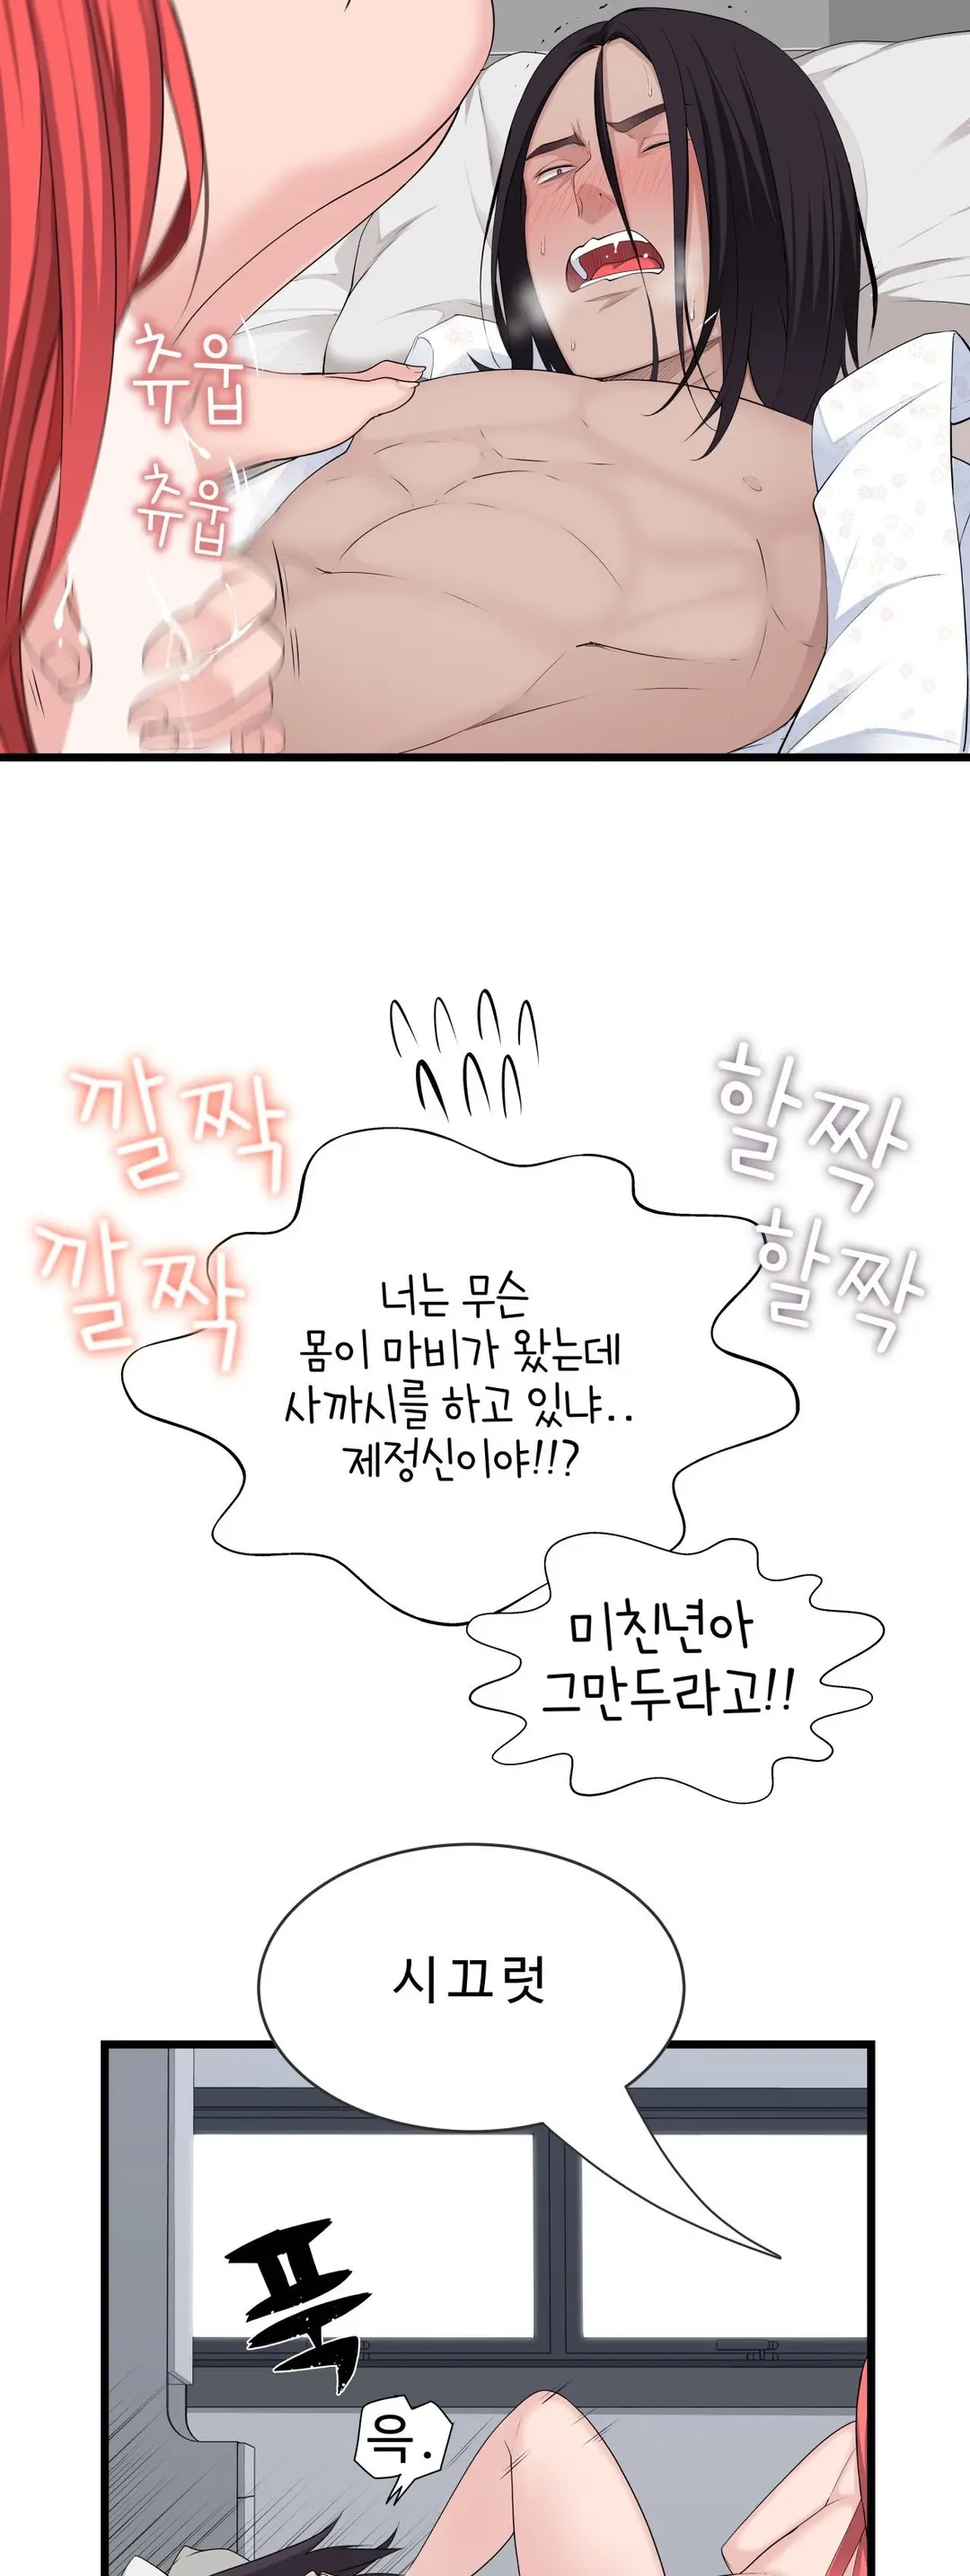 츄웁
츄웁
깔짝
할짝
깔짝
할짝
너는 무슨
몸이 마비가 왔는데
사까시를 하고 있냐..
제정신이야!!!?
미친년아
그만두라고!!
시끄럿
푹
윽.